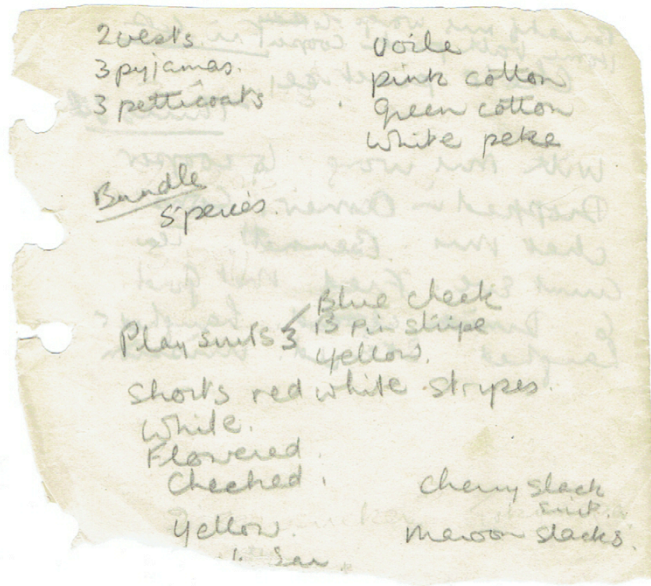 2 vests
3 pyjamas.
3 petticoats
Voile
pink cotton
Green cotton
White peke
Bundle
5 pieces.
Play suits 3
Blue check
B Pin stripe
yellow.
Shorts red white stripes.
White.
Flowered.
Checked.
Yellow.
Cherry slack
suit.
Maroon slacks.